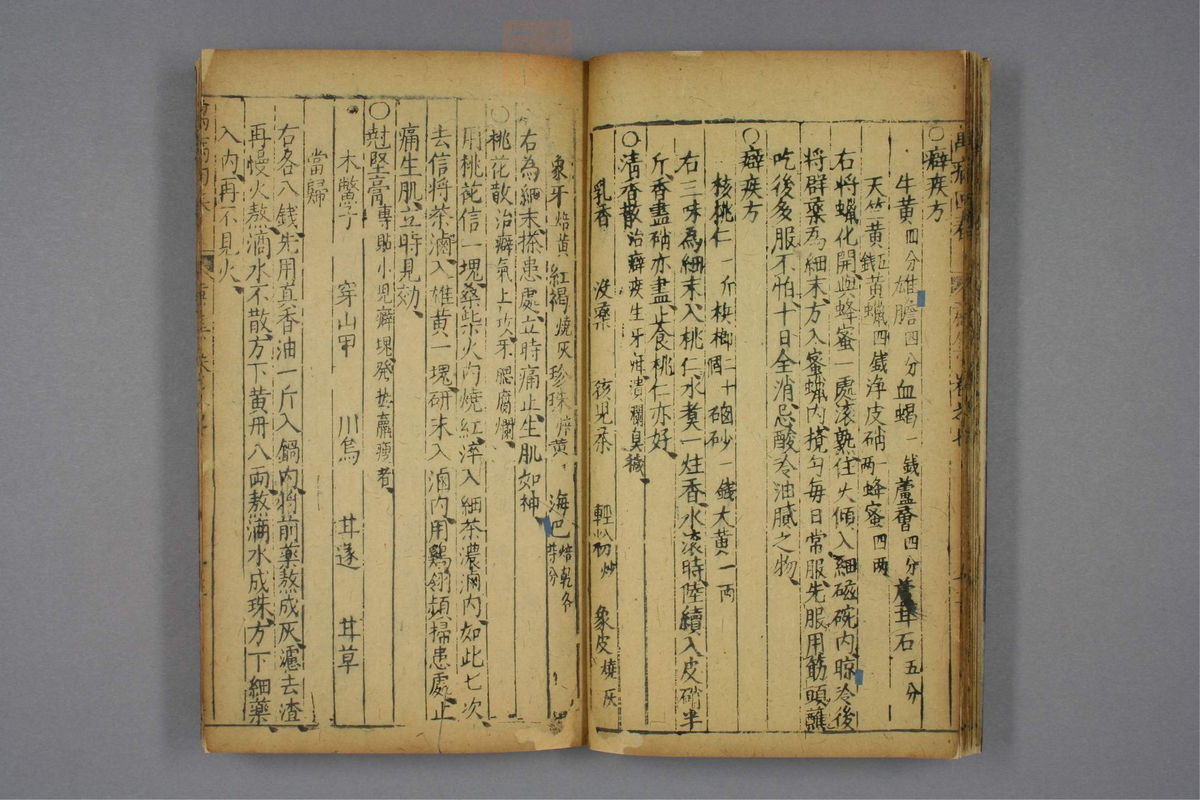 ○癖疾方
牛黄四分 雄膽四分 血竭一錢 蘆薈四分 甘石五分
天竺黄五錢 黄蠟四錢 淨皮硝一兩 蜂蜜四兩
右將蠟化開與蜂蜜一處滚熟住火傾入細磁碗内晾冷後
將群藥為細末方入蜜蠟内攪勻每日常服先服用筋頭蘸
吃後多服不怕十日全消忌酸冷油膩之物
○癖疾方
核桃仁一斤 梹榔二十個 硇砂一錢 大黄一兩
右三味為細末入桃仁水煑一炷香水滚時陸續入皮硝半
斤香盡硝亦盡止食桃仁亦好
○清香散治癖疾生牙疳潰爛臭穢
乳香 沒藥 孩兒茶 輕粉炒 象皮燒灰
象牙焙黄 紅褐燒灰 珍珠焙黄 海巴焙乾各等分
右為細末搽患處立時痛止生肌如神
○桃花散治癖氣上攻牙腮腐爛
用桃花信一塊桑柴火内燒紅淬入細茶濃滷内如此七次
去信將茶滷入雄黄一塊研末入滷内用鷄翎頻掃患處止
痛生肌立時見効
○尅堅膏專貼小兒癖塊發熱羸瘦者
木鱉子 穿山甲 川烏 甘遂 甘草
當歸
右各八錢先用真香油一斤入鍋内將前藥熬成灰濾去渣
再慢火熬滴水不散方下黄丹八兩熬滴水成珠方下細藥
入内再不見火